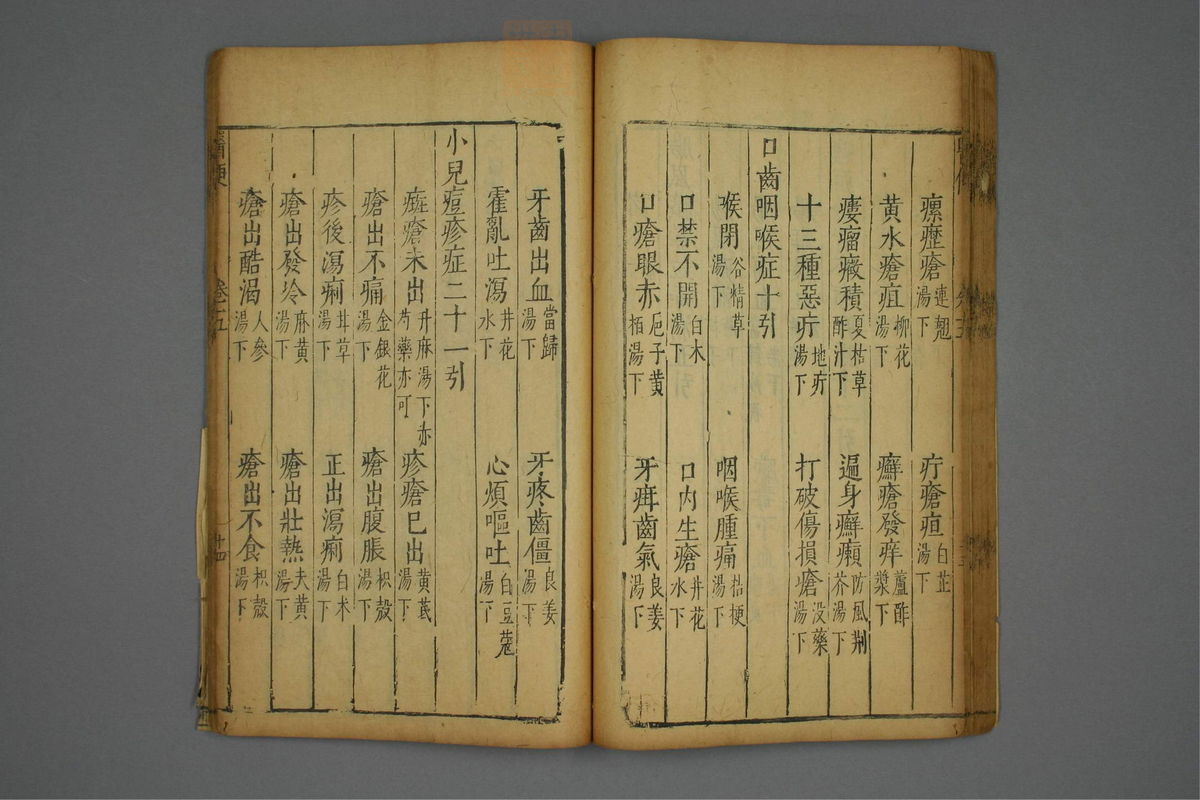 瘰癧瘡連翹湯下　疔瘡疽白芷湯下
黄水瘡疽柳花湯下　癬瘡發痒蘆酢漿下
瘻瘤癥積夏枯草酢汁下　遍身癬癩防風荆芥湯下
十三種惡疔地疔湯下　打破傷損瘡没藥湯下
口齒咽喉症十引
喉閉谷精草湯下　咽喉腫痛桔梗湯下
口禁不開白木湯下　口内生瘡井花水下
口瘡眼赤巵子黄栢湯下　牙疳齒氣良姜湯下
牙齒出血當歸湯下　牙疼齒僵良姜湯下
霍亂吐瀉井花水下　心煩嘔吐白豆蔻湯下
小兒痘疹症二十一引
痲瘡未出升麻湯下赤芍藥亦可　疹瘡已出黄芪湯下
瘡出不痛金銀花湯下　瘡出腹脹枳殼湯下
疹後瀉痢甘草湯下　正出瀉痢白木湯下
瘡出發冷麻黄湯下　瘡出壯熱大黄湯下
瘡出酷渴人參湯下　瘡出不食枳殼湯下
醫便
卷五